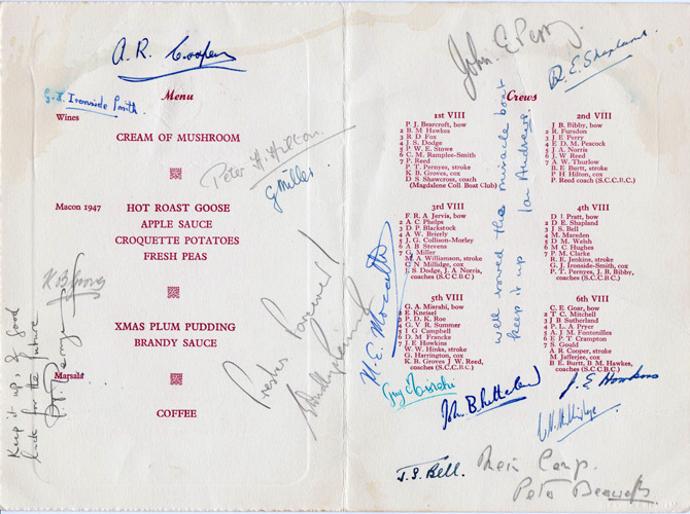 A. R. Cooper
G. J. Ironside Smith.
Menu
Wines
CREAM OF MUSHROOM
Peter H. Hilton
G Miller
Macon 1947
HOT ROAST GOOSE
APPLE SAUCE
CROQUETTE POTATOES
FRESH PEAS
K B Groves
XMAS PLUM PUDDING
BRANDY SAUCE
Marsala
COFFEE
Keep it up, & good
luck for the future
Preston
John. E Perry
D. E. Shapland.
Crews
1st VIII
P. J. Bearcroft, bow
2 B. M Hawkes
3 R. D Fox
4 J. S. Dodge
5 P. W. E. Stowe
6 C. M. Ramplee-Smith
7 P. Reed
P. T. Pernyes, stroke
K. B. Groves, cox
D. S Shawcross, coach
(Magdalene Coll Boat Club)
2nd VIII
J B. Bibby, bow
2 R. Fursdon
3 J E Perry
4 E D. M. Peacock
5 J A. Norris
6 J. W Reed
7 A W. Thurlow
B. E Burtt, stroke
P H. Hilton, cox
P. Reed coach (S.C.C.B.C.)
3rd VIII
F. R. A Jervis, bow
2 A C Phelps
3 D P. Blackstock
4 A W. Brierly
5 J. G. Collison-Morley
6 A B Stevens
7 G. Miller
M. A Williamson, stroke
C N Millidge, cox
J. S Dodge, J A. Norris,
coaches (S.C.C.B.C.)
4th VIII
D I. Pratt, bow
2 D E. Shapland
3 J S. Bell
4 M. Marsden
5 D M. Welsh
6 M C. Hughes
7 P M. Clarke
R E. Jenkins, stroke
G. J. Ironside-Smith, cox
P. T. Pernyes, J. B, Bibby,
coaches (S.C.C.B.C.)
5th VIII
G. A. Misrahi, bow
2 E Kneisel
3 P. D. K. Roe
4 G. V R. Summer
5 I G Campbell
6 D. M Francke
7 J. E Howkins
W W. Hinks, stroke
G. Harrington, cox
K. B. Groves J W. Reed,
coaches (S.C.C.B.C.)
6th VIII
C. E Goar, bow
2 T C. Mitchell
3 J B Sutherland
4 P L. A Pryer
5 A. J. M. Fontonilles
6 E P T Crampton
7 S. Gould
A R Cooper, stroke
M. Jafferjee, cox
B E. Burtt, B M. Hawkes,
coaches (S.C.C.B.C.)
well rowed the miracle boat
keep it up Ian Andrews.
Guy Misrahi
J. E Howkins
J. S. Bell.
Peter